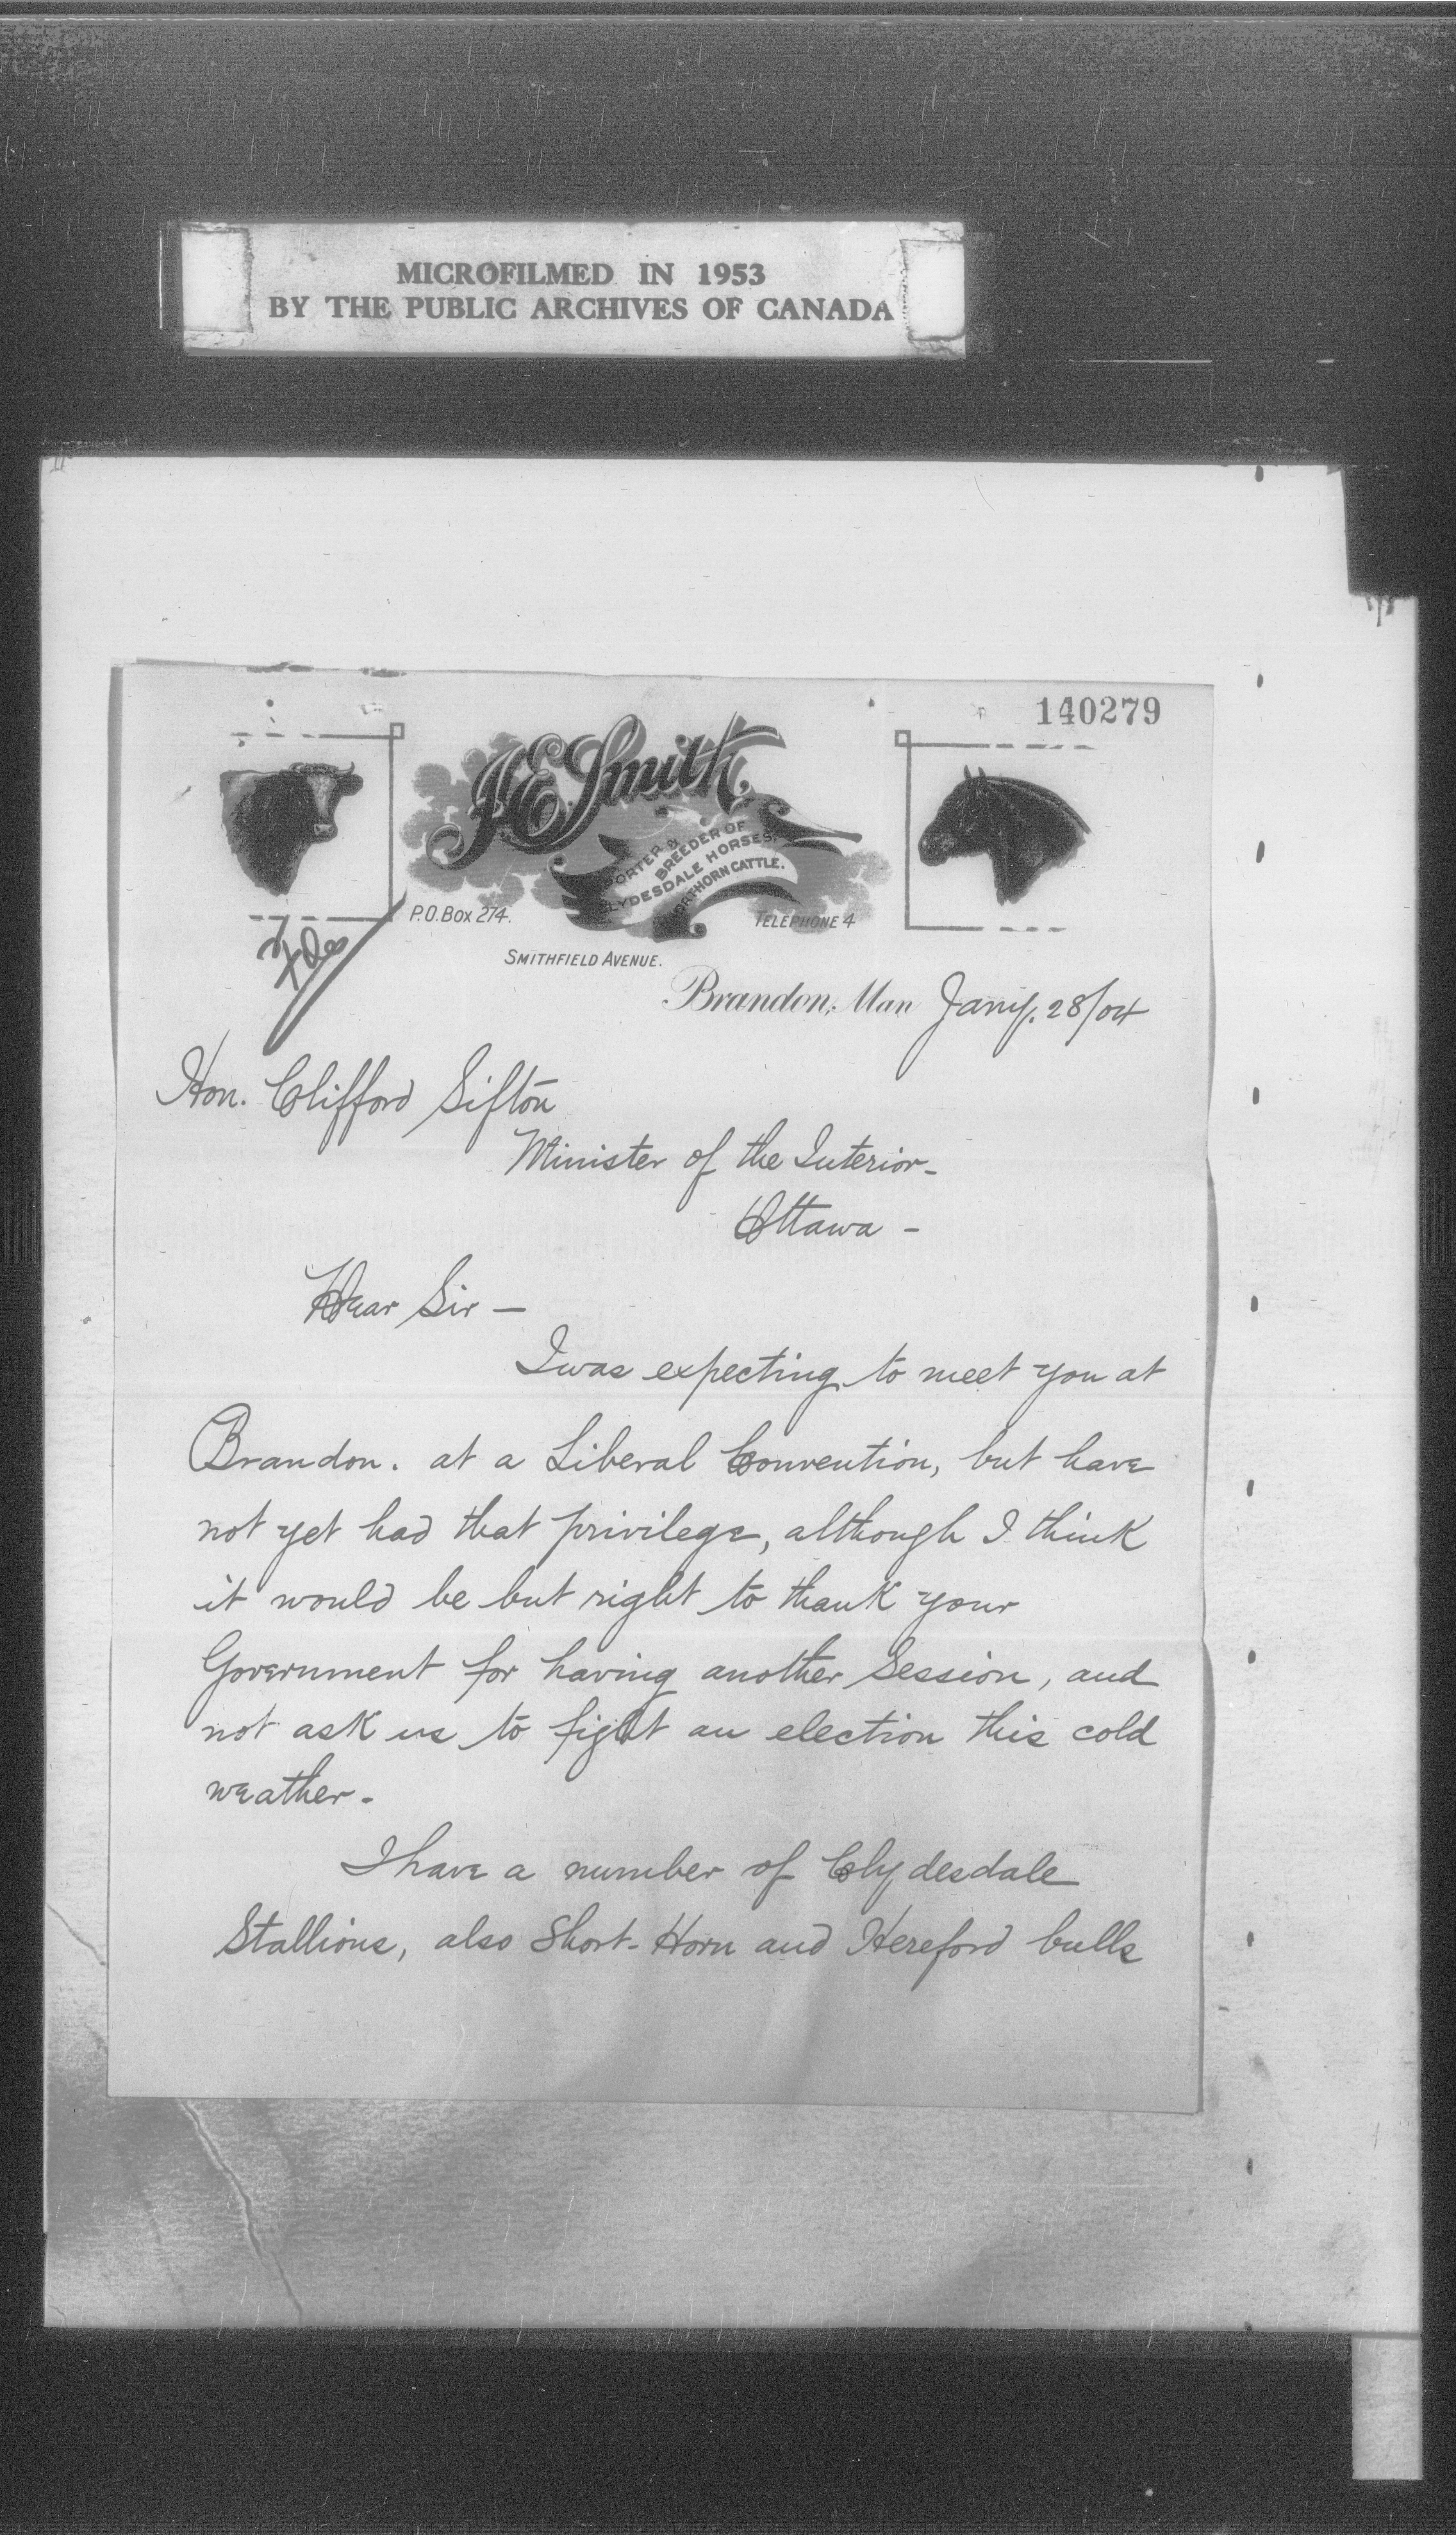 MICROFILMED IN 1953
BY THE PUBLIC ARCHIVES OF CANADA
140279
J.E. Smith.
PORTER &
BREEDER OF
CLYDESDALE HORSES.
ORTHORN CATTLE.
P.O. Box 274.
TELEPHONE 4
SMITHFIELD AVENUE.
Brandon, Man Jany. 28/04
Hon. Clifford Sifton
Minister of the Interior -
Ottawa -
Dear Sir -
I was expecting to meet you at
Brandon. at a Liberal Convention, but have
not yet had that privilege, although I think
it would be but right to thank your
Government for having another Session, and
not ask us to fight an election this cold
weather -
I have a number of Clydesdale
Stallions, also Short-Horn and Hereford bulls